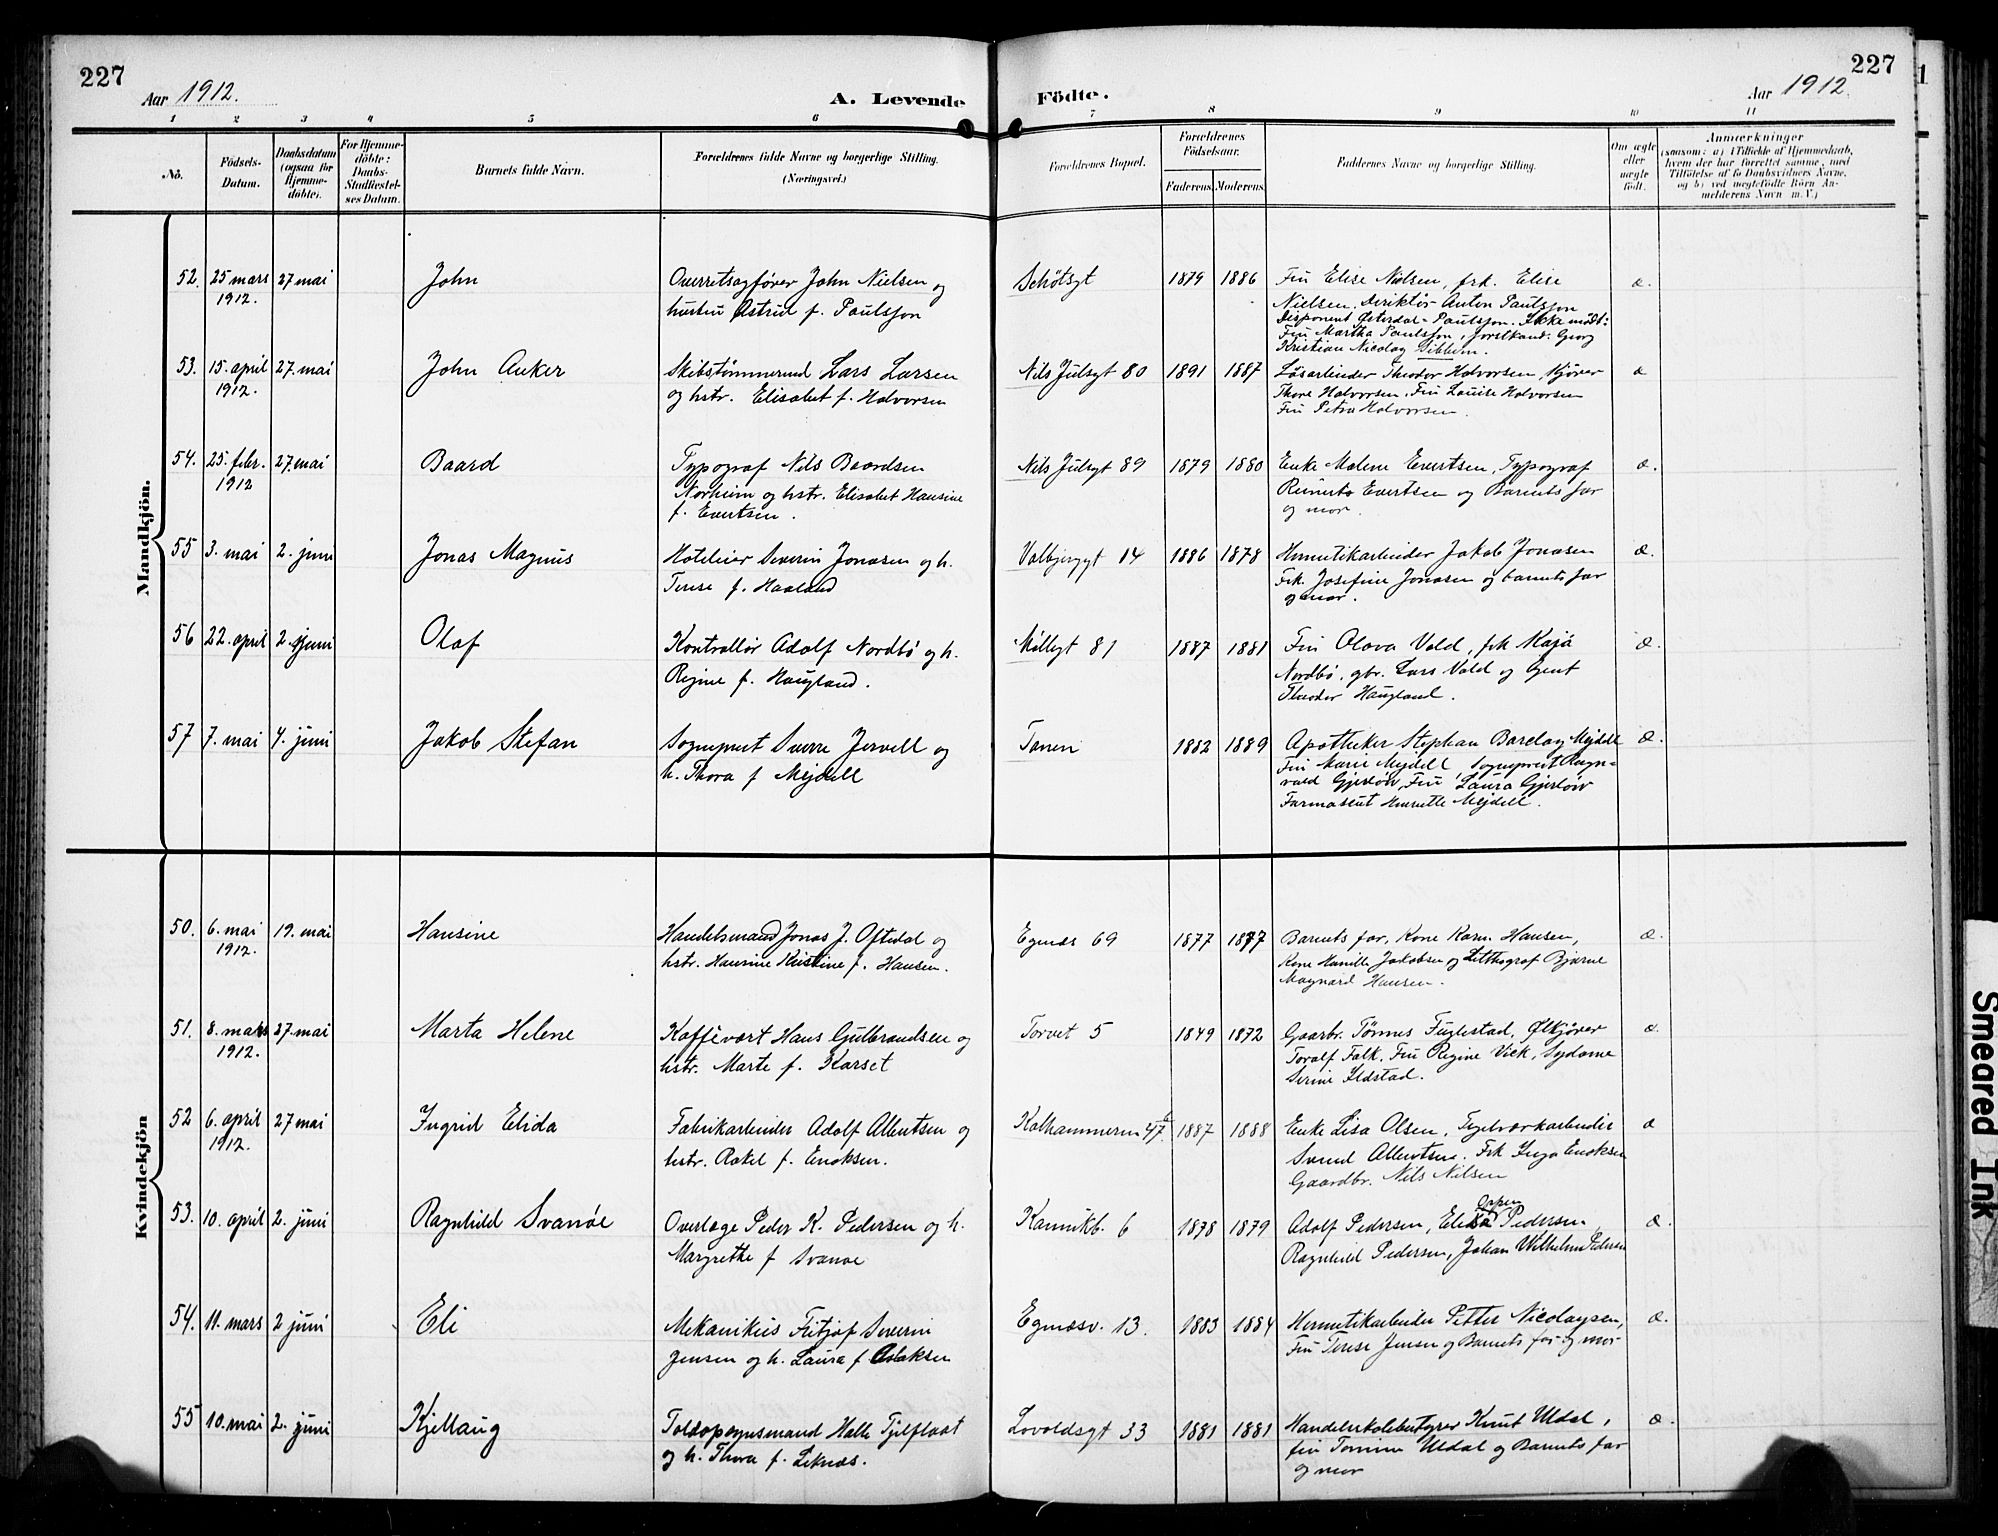 227
Aar 1912.
A. Levende Födte.
227
Aar 1912.
1 2 3 4 5 6 7 8 9 10 11
No.
Födsels-Datum.
Daabsdatum (ogsaa for Hjemme-döbte).
For Hjemme-döbte: Daabs-Stadfæstel-ses Datum.
Barnets fulde Navn.
Forældrenes fulde Navne og borgerlige Stilling.
(Næringsvei.)
Forældrenes Bopæl.
Forældrenes Födselsaar.
Faderens. Moderens.
Faddernes Navne og borgerlige Stilling.
Om ægte eller uægte födt.
Anmærkninger
(saasom: a) i Tilfælde af Hjemmedaab, hvem der har forrettet samme, med Tilföielse af to Daabsvidners Navne, og b) ved uægtefödte Börn An-melderens Navn m.V.)
Mandkjön.
52. 25 mars 1912. 27 mai John
Overretsagfører John Nielsen og
hustru Astrid f. Paulsson
Schøtsgt 1879 1886
Fru Elise Nielsen, frk. Elise
Nielsen, Direktør Anton Paulsson
Disponent Østerdal-Paulsson. Ikke mødt:
Fru Martha Paulsson, forstkand. Georg
Kristian Nicolay Dibbern.
æ.
53. 15. april 1912. 27. mai John Anker
Skibstømmermd Lars Larsen
og hstr. Elisabet f. Halvorsen
Nils Julsgt 80 1891 1887
Løsarbeider Theodor Halvorsen, Kjører
Thore Halvorsen, Fru Louise Halvorsen
Fru Petra Halvorsen.
æ
54. 25. febr. 1912 27. mai Baard
Typograf Nils Baardsen
Norheim og hstr. Elisabet Hansine
f. Evertsen.
Nils Julsgt 89 1879 1880
Enke Malene Evertsen, Typograf
Reinerts Evertsen og Barnets far
og mor.
æ.
55 3. mai 2. juni Jonas Magnus
Hoteleier Severin Jonasen og h.
Terese f. Haaland
Valbjerggt 14 1886 1878
Hermetikarbeider Jakob Jonasen
Frk. Josefine Jonasen og barnets far
og mor.
æ.
56 22. april 2. juni Olaf
Kontrollør Adolf Nordbø og h.
Regine f. Haugland.
Møllegt 81 1887 1881
Fru Olava Vold, frk Kaja
Nordbø, gbr. Lars Vold og Agent
Theodor Haugland.
æ.
57 7. mai 4. juni Jakob Stefan
Sogneprest Sverre Jervell og
h. Thora f Mejdell
Tanen 1882 1889
Apotheker Stephan Barclay Mejdell
Fru Marie Mejdell, Sogneprest Ragn-
vald Gjerløw, Fru Laura Gjerløw
Farmaseut Henriette Mejdell.
æ.
Kvindekjön
50. 6. mai 1912. 19. mai Hansine
Handelsmand Jonas J. Oftedal og
hstr. Hansine Kristine f. Hansen.
Egenæs 69 1877 1877
Barnets far, Kone Karn. Hansen,
Kone Hanille Jakobsen og Litthograf Bjarne
Magnard Hansen.
æ.
51. 8. mars 1912. 27. mai Marta Helene
Kaffévært Hans Gulbrandsen og
hstr. Marte f. Karset
Torvet 5 1849 1872
Gaarbr. Tønnes Fuglestad, Ølkjører
Toralf Falk, Fru Regine Vick, Sydame
Serine Ildstad.
æ.
52 6. april 1912. 27 mai Ingrid Elida
Fabrikarbeider Adolf Albertsen og
hstr. Rakel f. Enoksen.
Kalhammeren 47 1887 1888
Enke Lisa Olsen, Tegelværkarbeider
Svend Albertsen. Frk Inga Enoksen
Gaardbr. Nils Nilsen
æ
53. 10. april 2. juni Ragnhild Svanøe
Overlæge Peder K. Pedersen og h.
Margrethe f Svanøe
Kannikb. 6 1878 1879
Adolf Pedersen, Elisa Pedersen,
Ragnhild Pedersen, Johan Wilhelm Pedersen
æ.
54. 11. mars 2 juni Eli
Mekanikus Fritjof Severin
Jensen og h. Laura f. Aslaksen
Egenæsv. 13. 1883 1884
Hermetikarbeider Pitter Nicolaysen,
Fru Terese Jensen og Barnets far og mor
æ.
55 10. mai 2. juni Kjellaug
Toldopsynsmand Halle Tjelflaat
og h. Thora f. Leknæs.
Lovoldsgt 33 1881 1881
Handelsskolebestyrer Knut Uldal,
fru Tomine Uldal og Barnets far
og mor
æ.
Smeared Ink